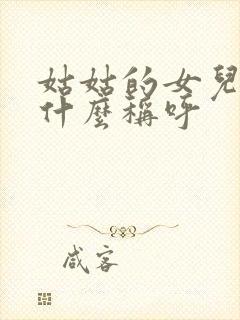 姑姑的女兒
什麼稱呼
咸客